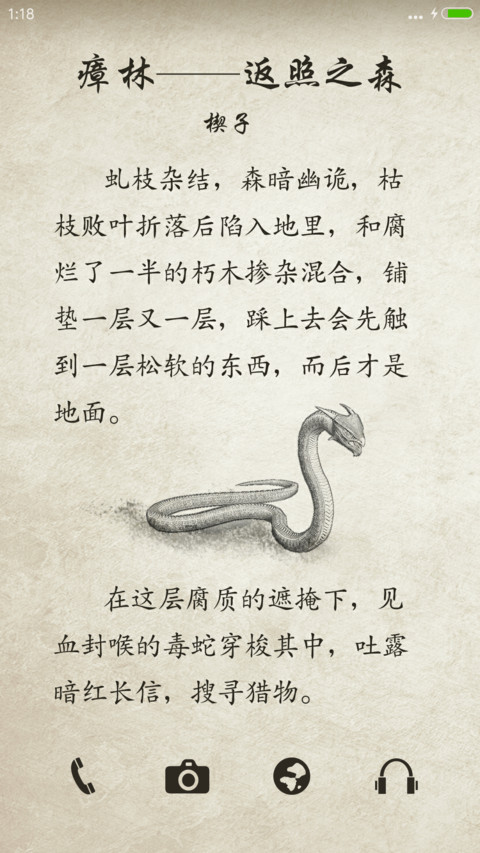 1:18
瘴林——返照之森
楔子
虬枝杂结，森暗幽诡，枯
枝败叶折落后陷入地里，和腐
烂了一半的朽木掺杂混合，铺
垫一层又一层，踩上去会先触
到一层松软的东西，而后才是
地面。
在这层腐质的遮掩下，见
血封喉的毒蛇穿梭其中，吐露
暗红长信，搜寻猎物。